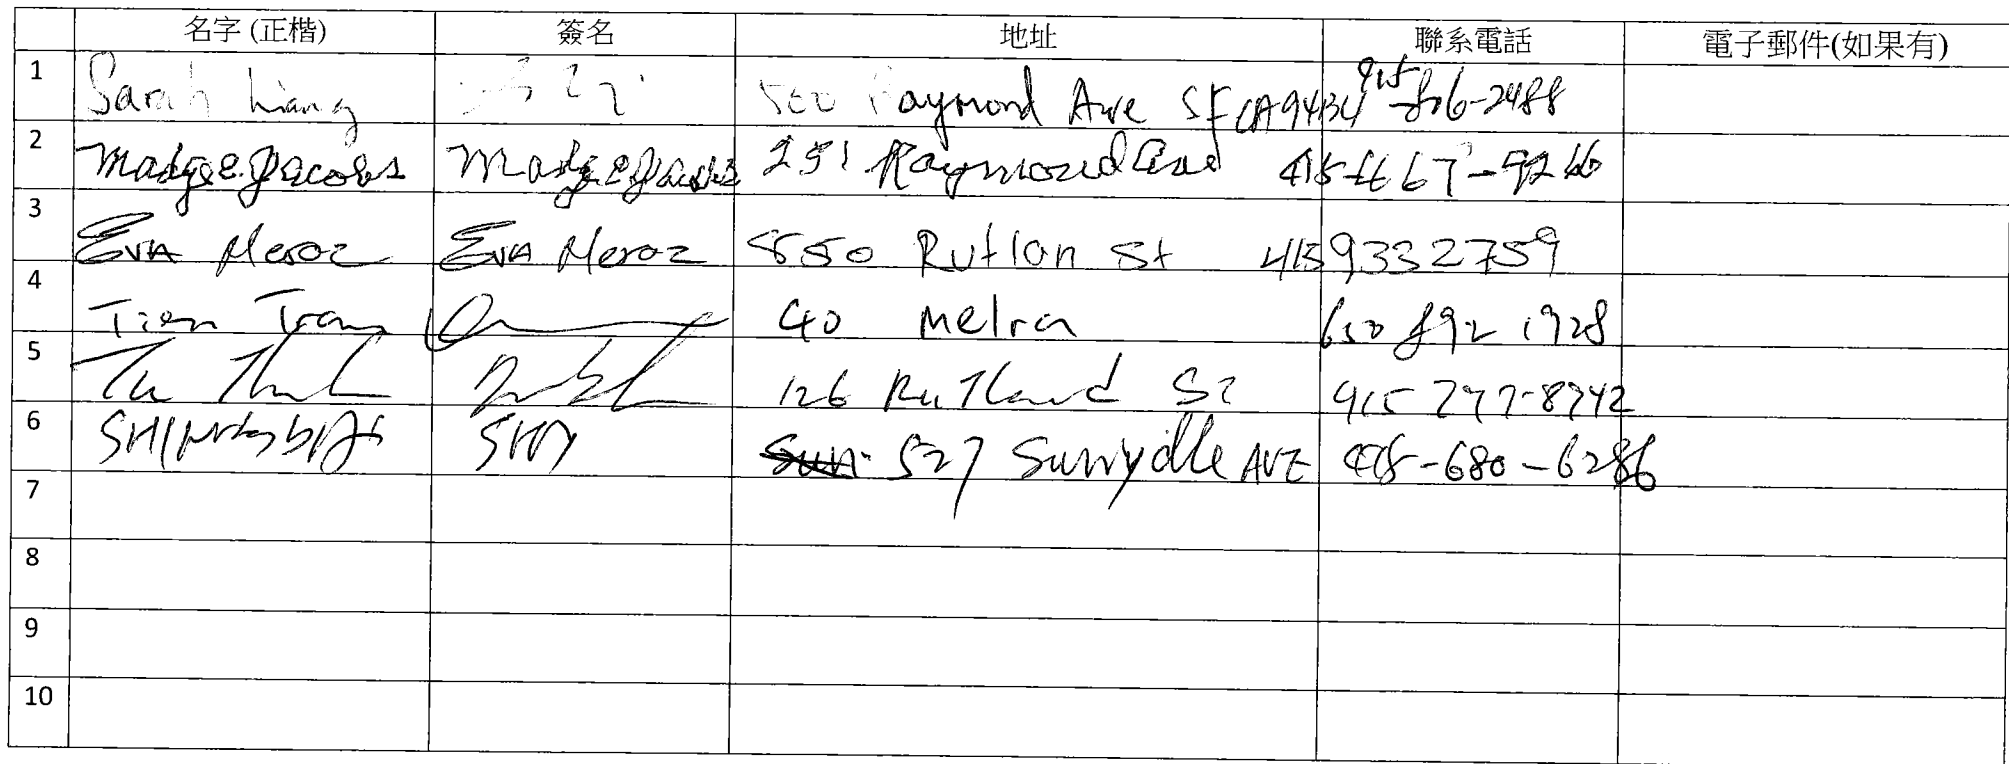 名字 (正楷) 簽名 地址 聯系電話 電子郵件(如果有)
1 Sarah Liang 500 Raymond Ave SF CA 94134 415-806-2488
2 Madge E. Jacobs Madge E Jacobs 251 Raymond Ave 415-467-9266
3 EVA Meroz EVA Meroz 550 Rutlan St 4159332759
4 Tien Tran 40 Melra 650 892 1928
5 126 Rutland St 415 777-8742
6 SHY 527 Sunnydlle AVE 415-680-6286
7
8
9
10